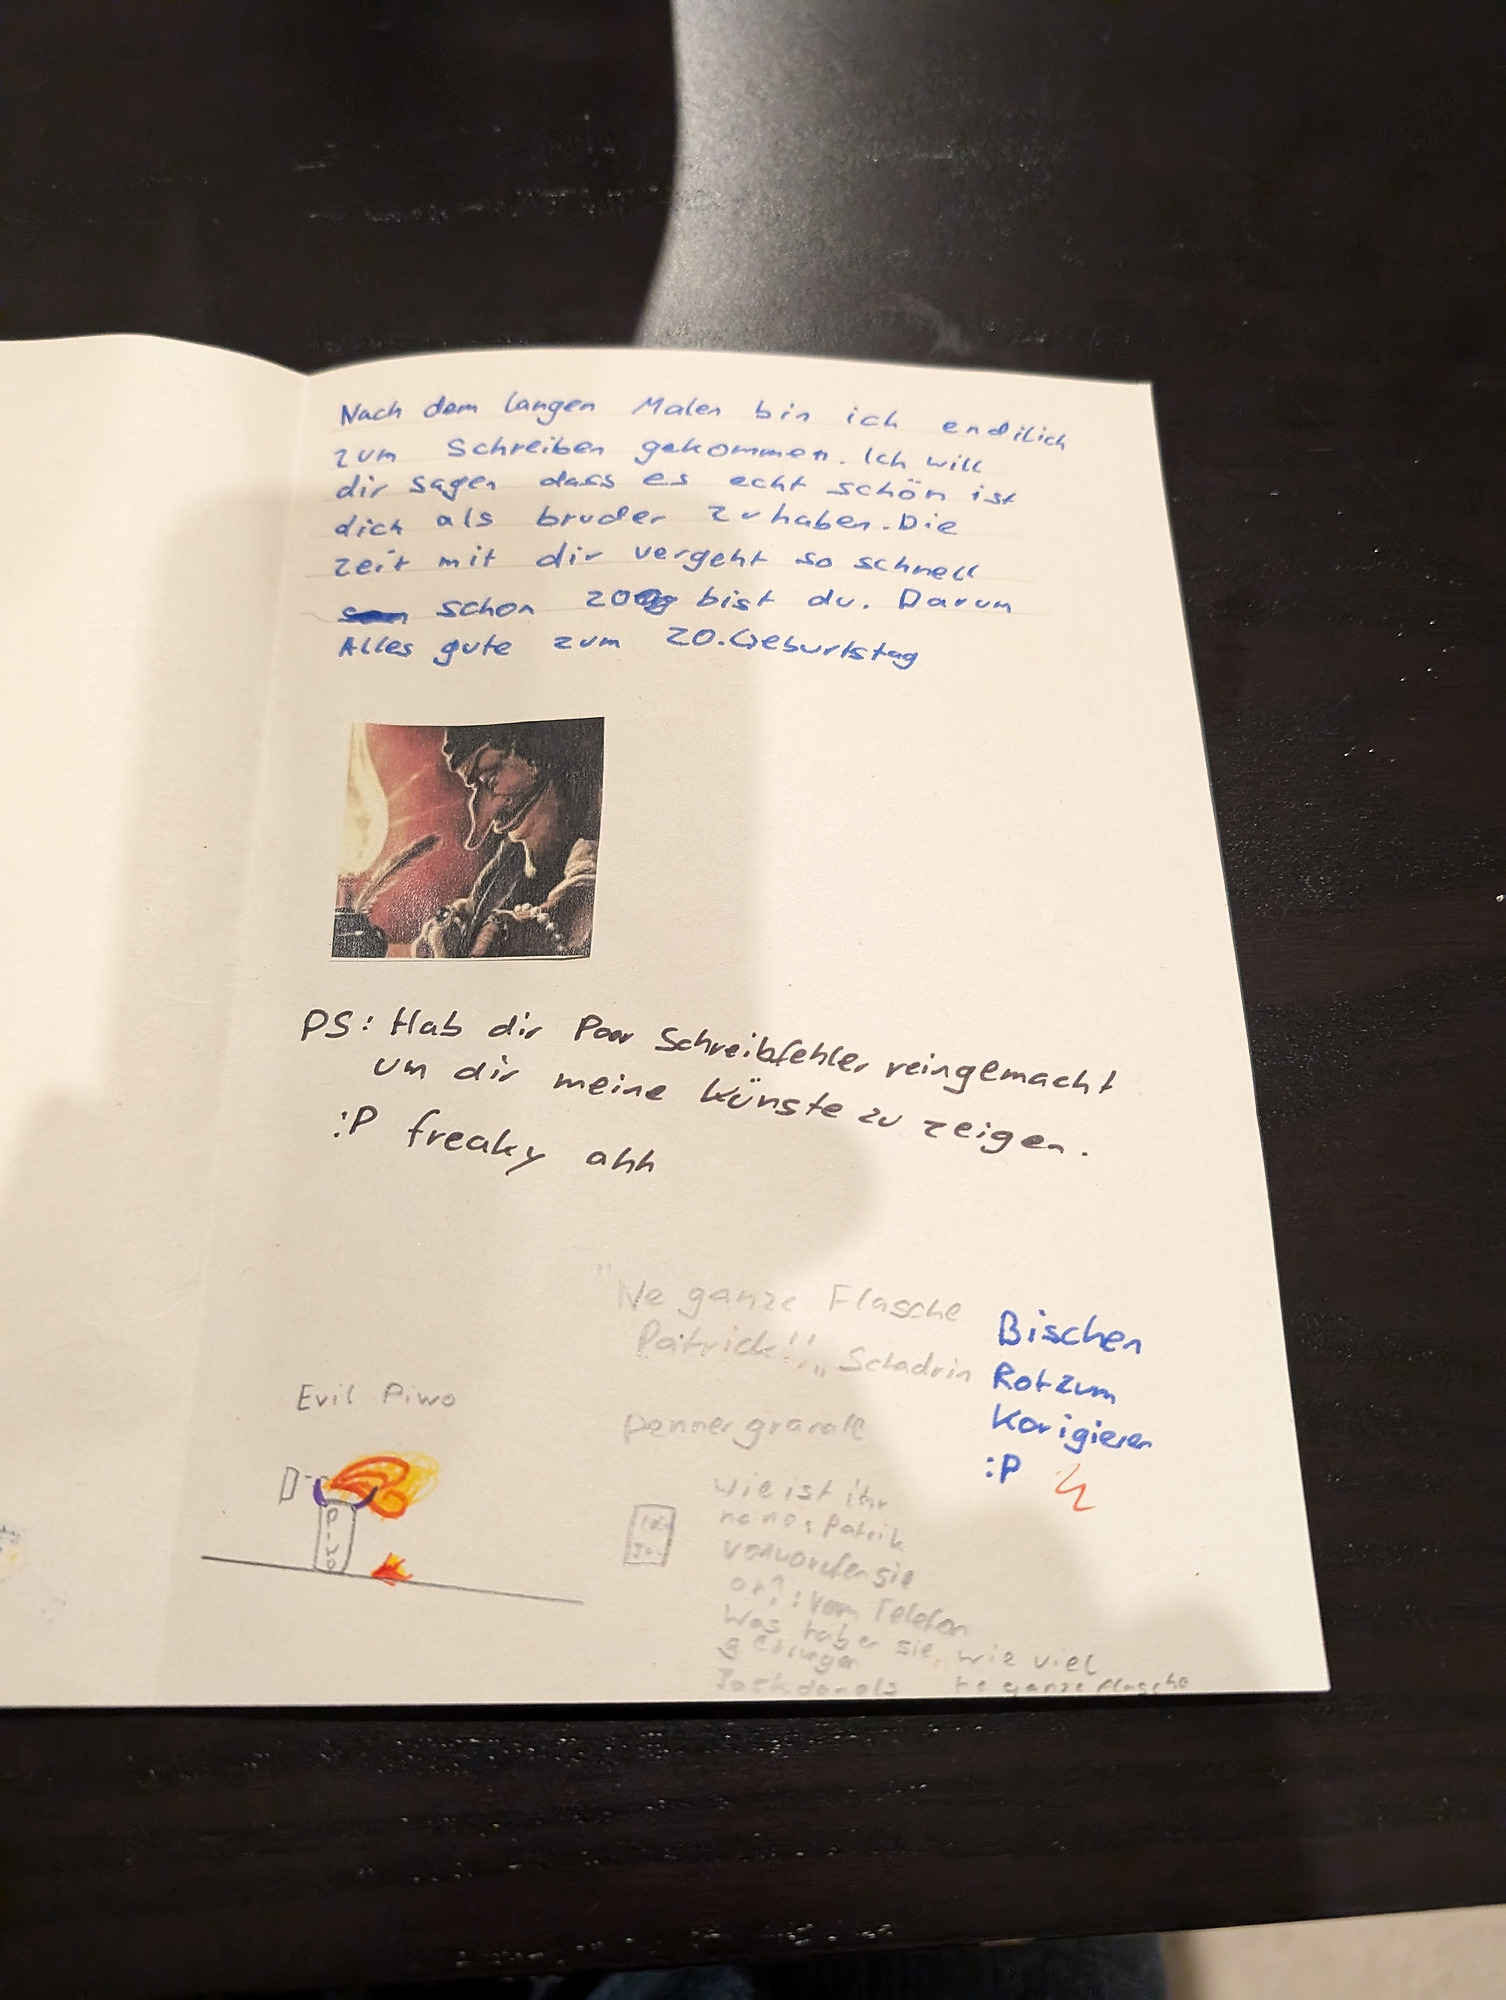 Nach dem langen Malen bin ich endilich
zum Schreiben gekommen. Ich will
dir sagen dass es echt schön ist
dich als bruder zu haben. Die
zeit mit dir vergeht so schnell
schon 20 bist du. Darum
Alles gute zum 20. Geburtstag
PS: Hab dir Paar Schreibfehler reingemacht
um dir meine Künste zu zeigen.
:P freaky ahh
"Ne ganze Flasche
Patrick!!"
Bischen
Rot zum
Korigieren
:P
Evil Piwo
Piwo
wie ist ihr
Patrik
sie
Vom Telefon
Was haben sie, wie viel
ne ganze Flasche